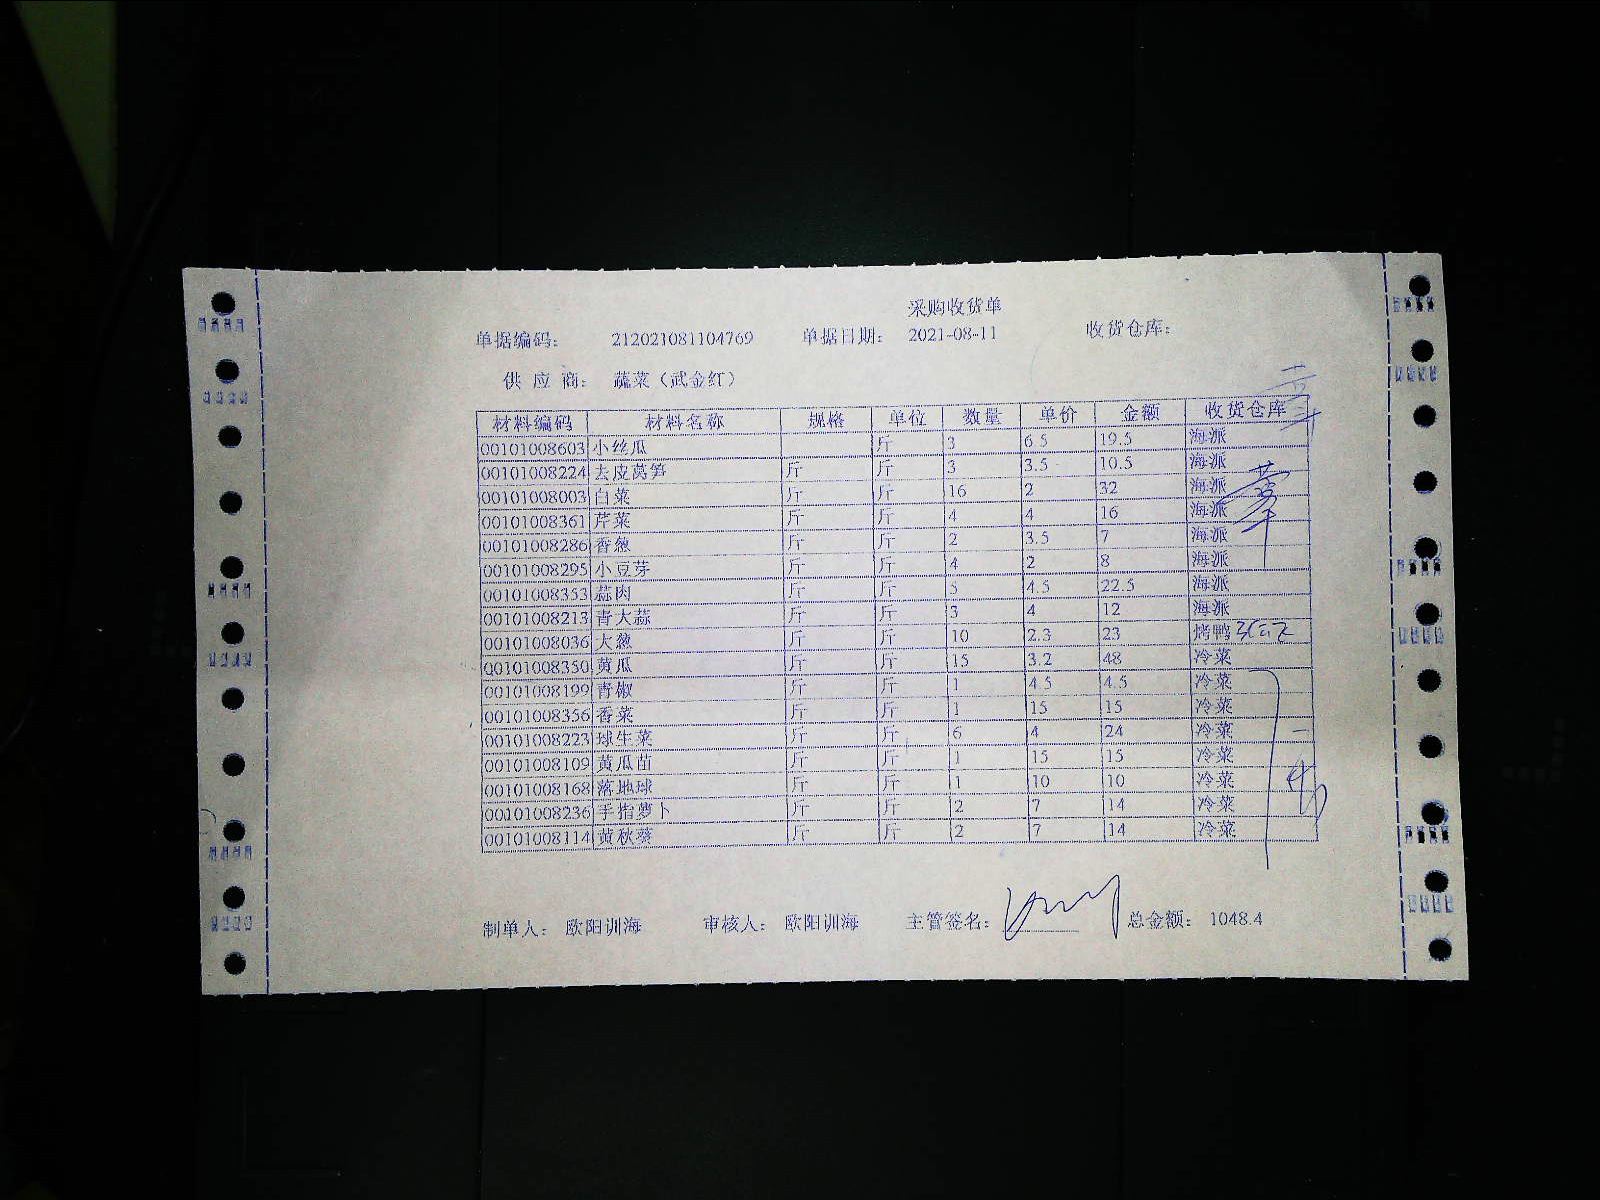 采购收货单
单据编码: 212021081104769 单据日期: 2021-08-11 收货仓库:
供 应 商: 蔬菜（武金红）
材料编码 材料名称 规格 单位 数量 单价 金额 收货仓库
00101008603 小丝瓜 斤 3 6.5 19.5 海派
00101008224 去皮莴笋 斤 斤 3 3.5 10.5 海派
00101008003 白菜 斤 斤 16 2 32 海派
00101008361 芹菜 斤 斤 4 4 16 海派
00101008286 香葱 斤 斤 2 3.5 7 海派
00101008295 小豆芽 斤 斤 4 2 8 海派
00101008353 蒜肉 斤 斤 5 4.5 22.5 海派
00101008213 青大蒜 斤 斤 3 4 12 海派
00101008036 大葱 斤 斤 10 2.3 23 烤鸭
00101008350 黄瓜 斤 斤 15 3.2 48 冷菜
00101008199 青椒 斤 斤 1 4.5 4.5 冷菜
00101008356 香菜 斤 斤 1 15 15 冷菜
00101008223 球生菜 斤 斤 6 4 24 冷菜
00101008109 黄瓜苗 斤 斤 1 15 15 冷菜
00101008168 落地球 斤 斤 1 10 10 冷菜
00101008236 手指萝卜 斤 斤 2 7 14 冷菜
00101008114 黄秋葵 斤 斤 2 7 14 冷菜
制单人: 欧阳训海 审核人: 欧阳训海 主管签名: 总金额: 1048.4